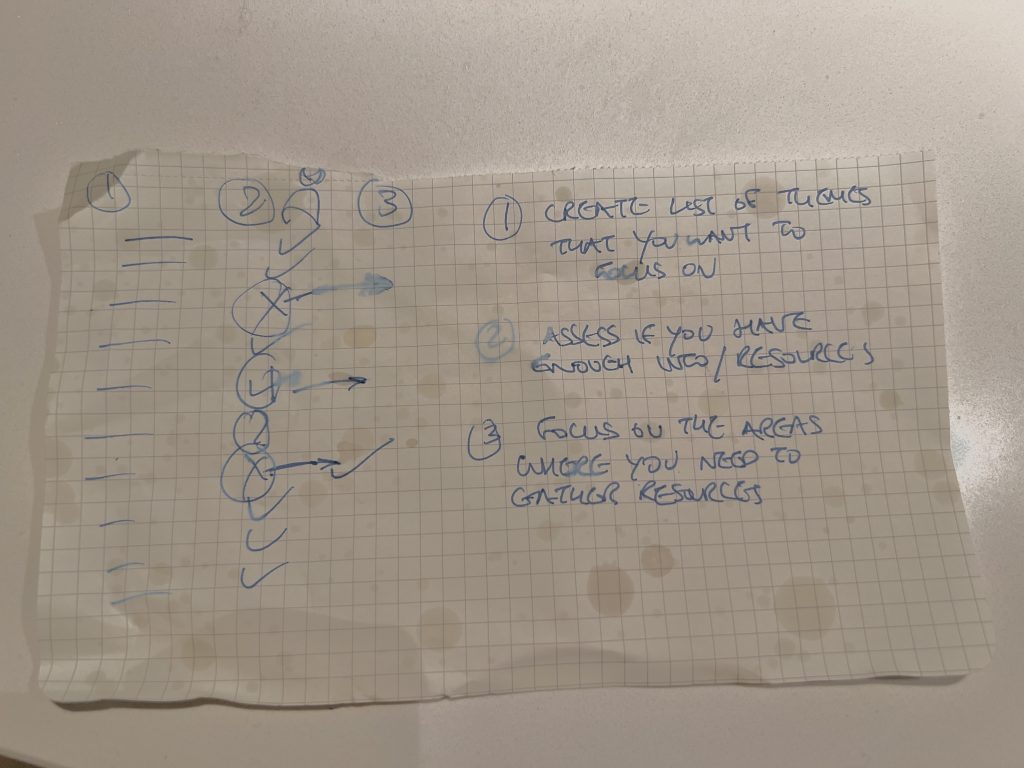 ① ② ③
① CREATE LIST OF THEMES
THAT YOU WANT TO
FOCUS ON
② ASSESS IF YOU HAVE
ENOUGH INFO/RESOURCES
③ FOCUS ON THE AREAS
WHERE YOU NEED TO
GATHER RESOURCES